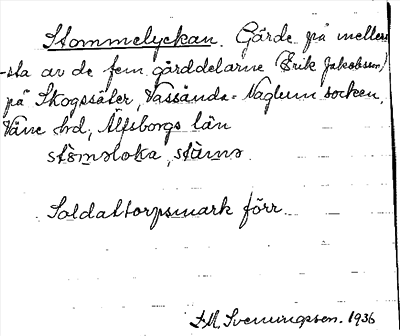 Stommelyckan. Gärde på mellers
-sta av de fem gårddelarne (Erik Jakobssons)
på Skogssäter, Vassända-Naglum socken,
Väne hd, Älfsborgs län
stòməloka, stàmə
Soldattorpsmark förr.
F.M. Sveningsson. 1936